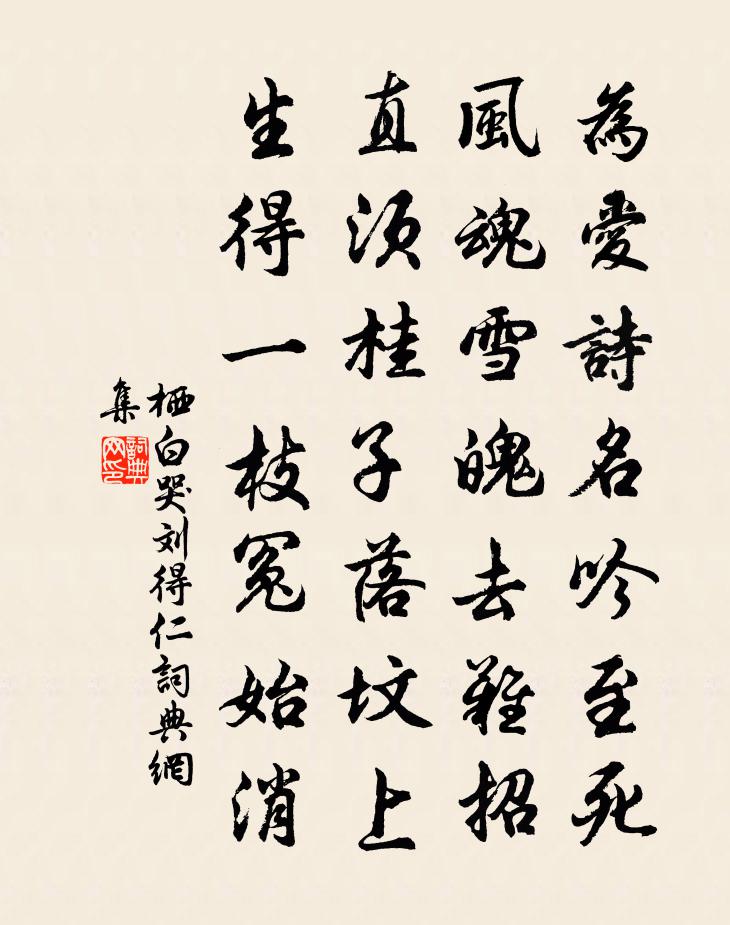 為愛詩名吟至死
風魂雪魄去難招
直須桂子落墳上
生得一枝冤始消
栖白哭刘得仁詞典網
集
詞典网印